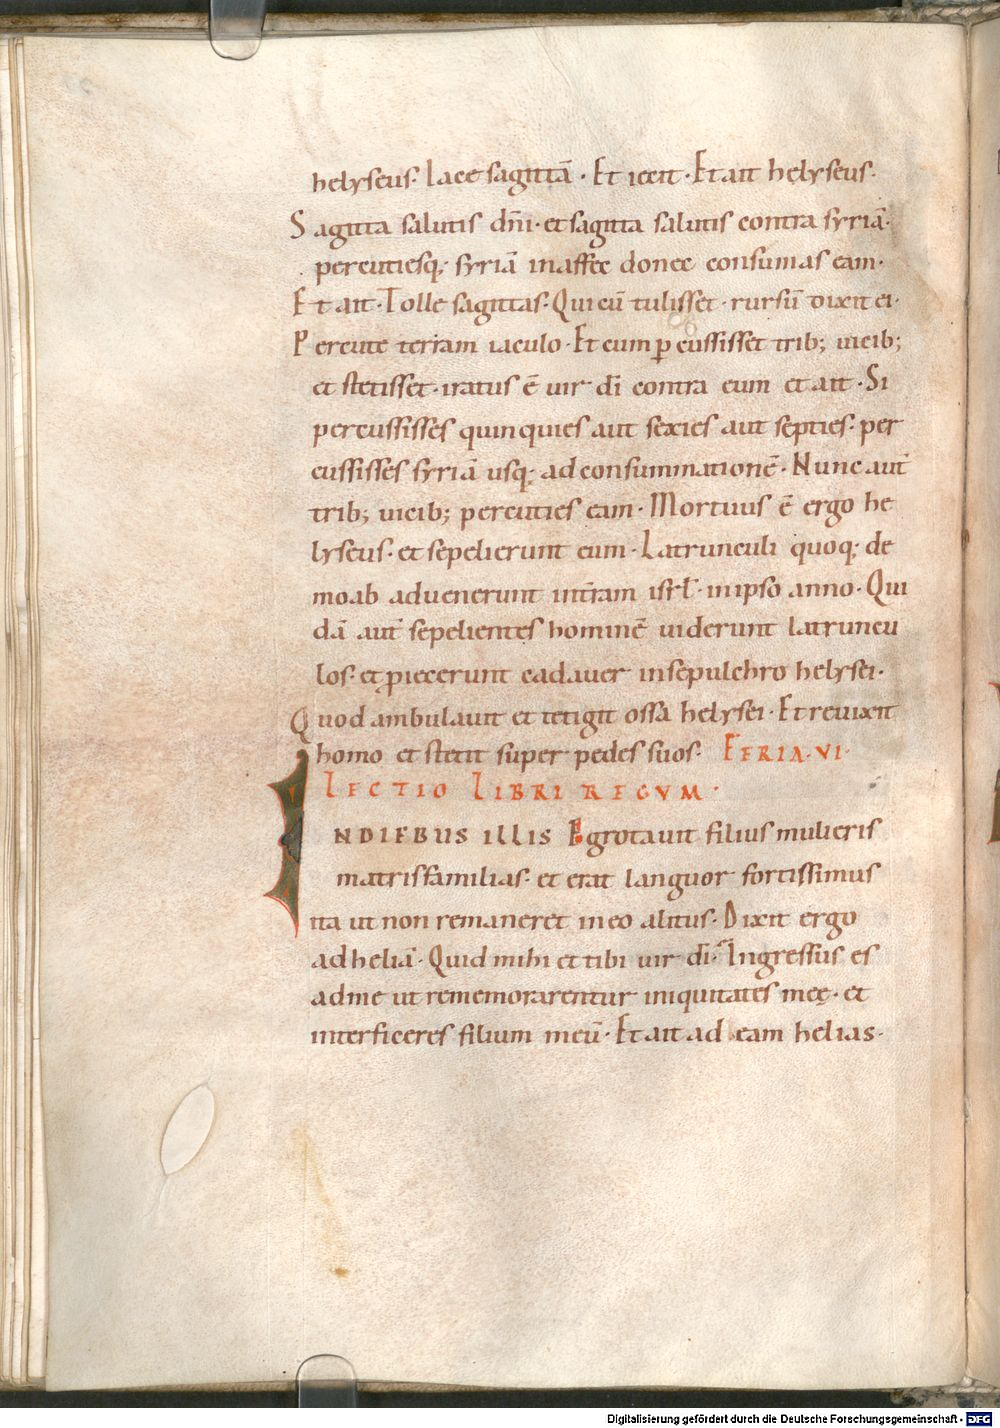 helyseus· Iace sagittā · Et iecit · Et ait helyseus·
Sagitta salutis dn̄i· et sagitta salutis contra syriā·
percutiesq; syriā in affec donec consumas eam·
Et ait· Tolle sagittas· Qui cū tulisset · rursū dixit ei·
Percute terram iaculo· Et cum ꝑcussisset trib; uicib;
et stetisset· iratus ē uir dī contra eum et ait · Si
percussisses quinquies aut sexies aut septies· per
cussisses syriā usq; ad consummationē · Nunc aut̄
trib; uicib; percuties eam · Mortuus ē ergo he
lyseus· et sepelierunt eum · Latrunculi quoq; de
moab aduenerunt int̄ram isrl̄ · in ipso anno · Qui
dā aut̄ sepelientes hominē uiderunt latruncu
los· et ꝓiecerunt cadauer in sepulchro helysei·
Quod ambulauit et tetigit ossa helysei · Et reuixit
homo et stetit super pedes suos· FERIA·VI·
LECTIO LIBRI REGVM·
INDIEBUS ILLIS Egrotauit filius mulieris
matrisfamilias· et erat languor fortissimus
ita ut non remaneret in eo alitus· Dixit ergo
ad heliā · Quid mihi et tibi uir dī· Ingressus es
ad me ut rememorarentur iniquitates meę· et
interficeres filium meū· Et ait ad eam helias·
Digitalisierung gefördert durch die Deutsche Forschungsgemeinschaft - DFG